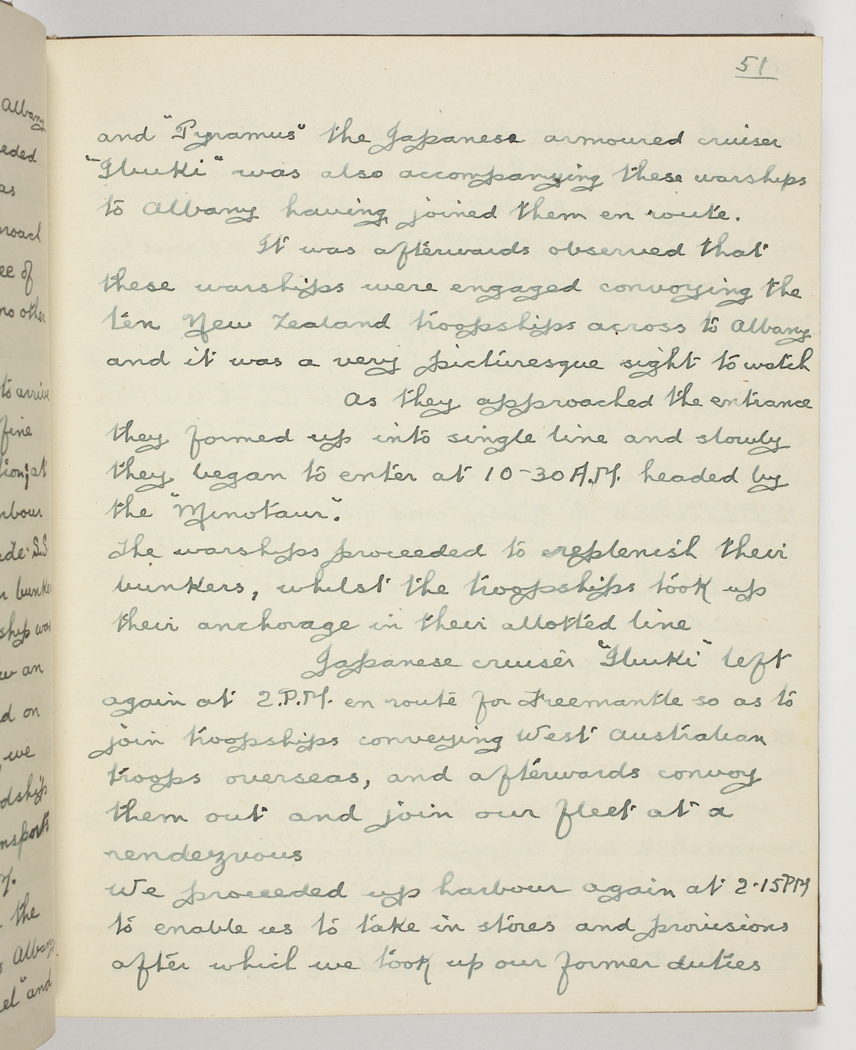 51
and "Pyramus" the Japanese armoured cruiser
"Ibuki" was also accompanying these warships
to Albany having joined them en route.
It was afterwards observed that
these warships were engaged convoying the
ten New Zealand troopships across to Albany
and it was a very picturesque sight to watch
As they approached the entrance
they formed up into single line and slowly
they began to enter at 10-30 A.M. headed by
the "Minotaur".
The warships proceeded to replenish their
bunkers, whilst the troopships took up
their anchorage in their allotted line
Japanese cruiser "Ibuki" left
again at 2.P.M. en route for Freemantle so as to
join troopships conveying West Australian
troops overseas, and afterwards convoy
them out and join our fleet at a
rendezvous
We proceeded up harbour again at 2.15PM
to enable us to take in stores and provisions
after which we took up our former duties
Albany
eded
as
roach
ee of
no other
to arrive
fine
at
rbour
ade. S.S
bunke
ship was
an
d on
we
dship
nsports
y.
the
Albany
el" and